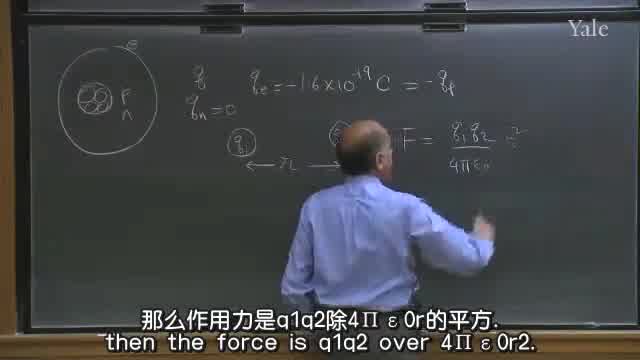 Yale
e
P
n
q
q_e = -1.6 × 10^-19 C = -q_p
q_n = 0
q_1
F = q_1 q_2 / 4πε_0
r
那么作用力是q1q2除4Πε0r的平方.
then the force is q1q2 over 4Πε0r2.